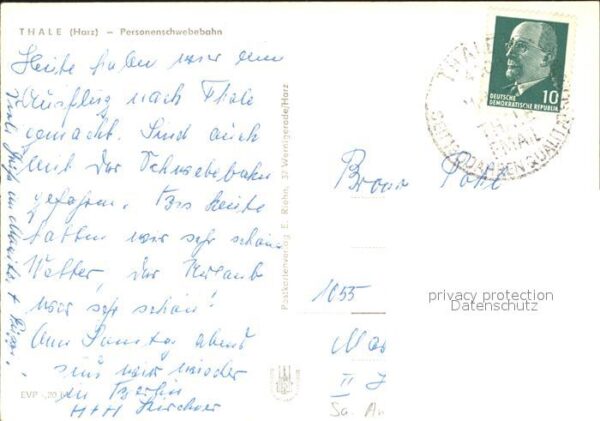 THALE (Harz) — Personenschwebebahn
Heute haben wir den
Ausflug nach Thale
gemacht. Sind auch
mit der Schwebebahn
gefahren. Bis heute
hatten wir sehr schönes
Wetter, der Urlaub
war sehr schön!
Am Samstag abend
sind wir wieder
in Berlin
H+H Kirchner
Viele Grüße
EVP -,20
Postkartenverlag E. Riehn, 37 Wernigerode/Harz
DEUTSCHE
DEMOKRATISCHE REPUBLIK
10
THALE
EMAIL
1055
II
privacy protection
Datenschutz